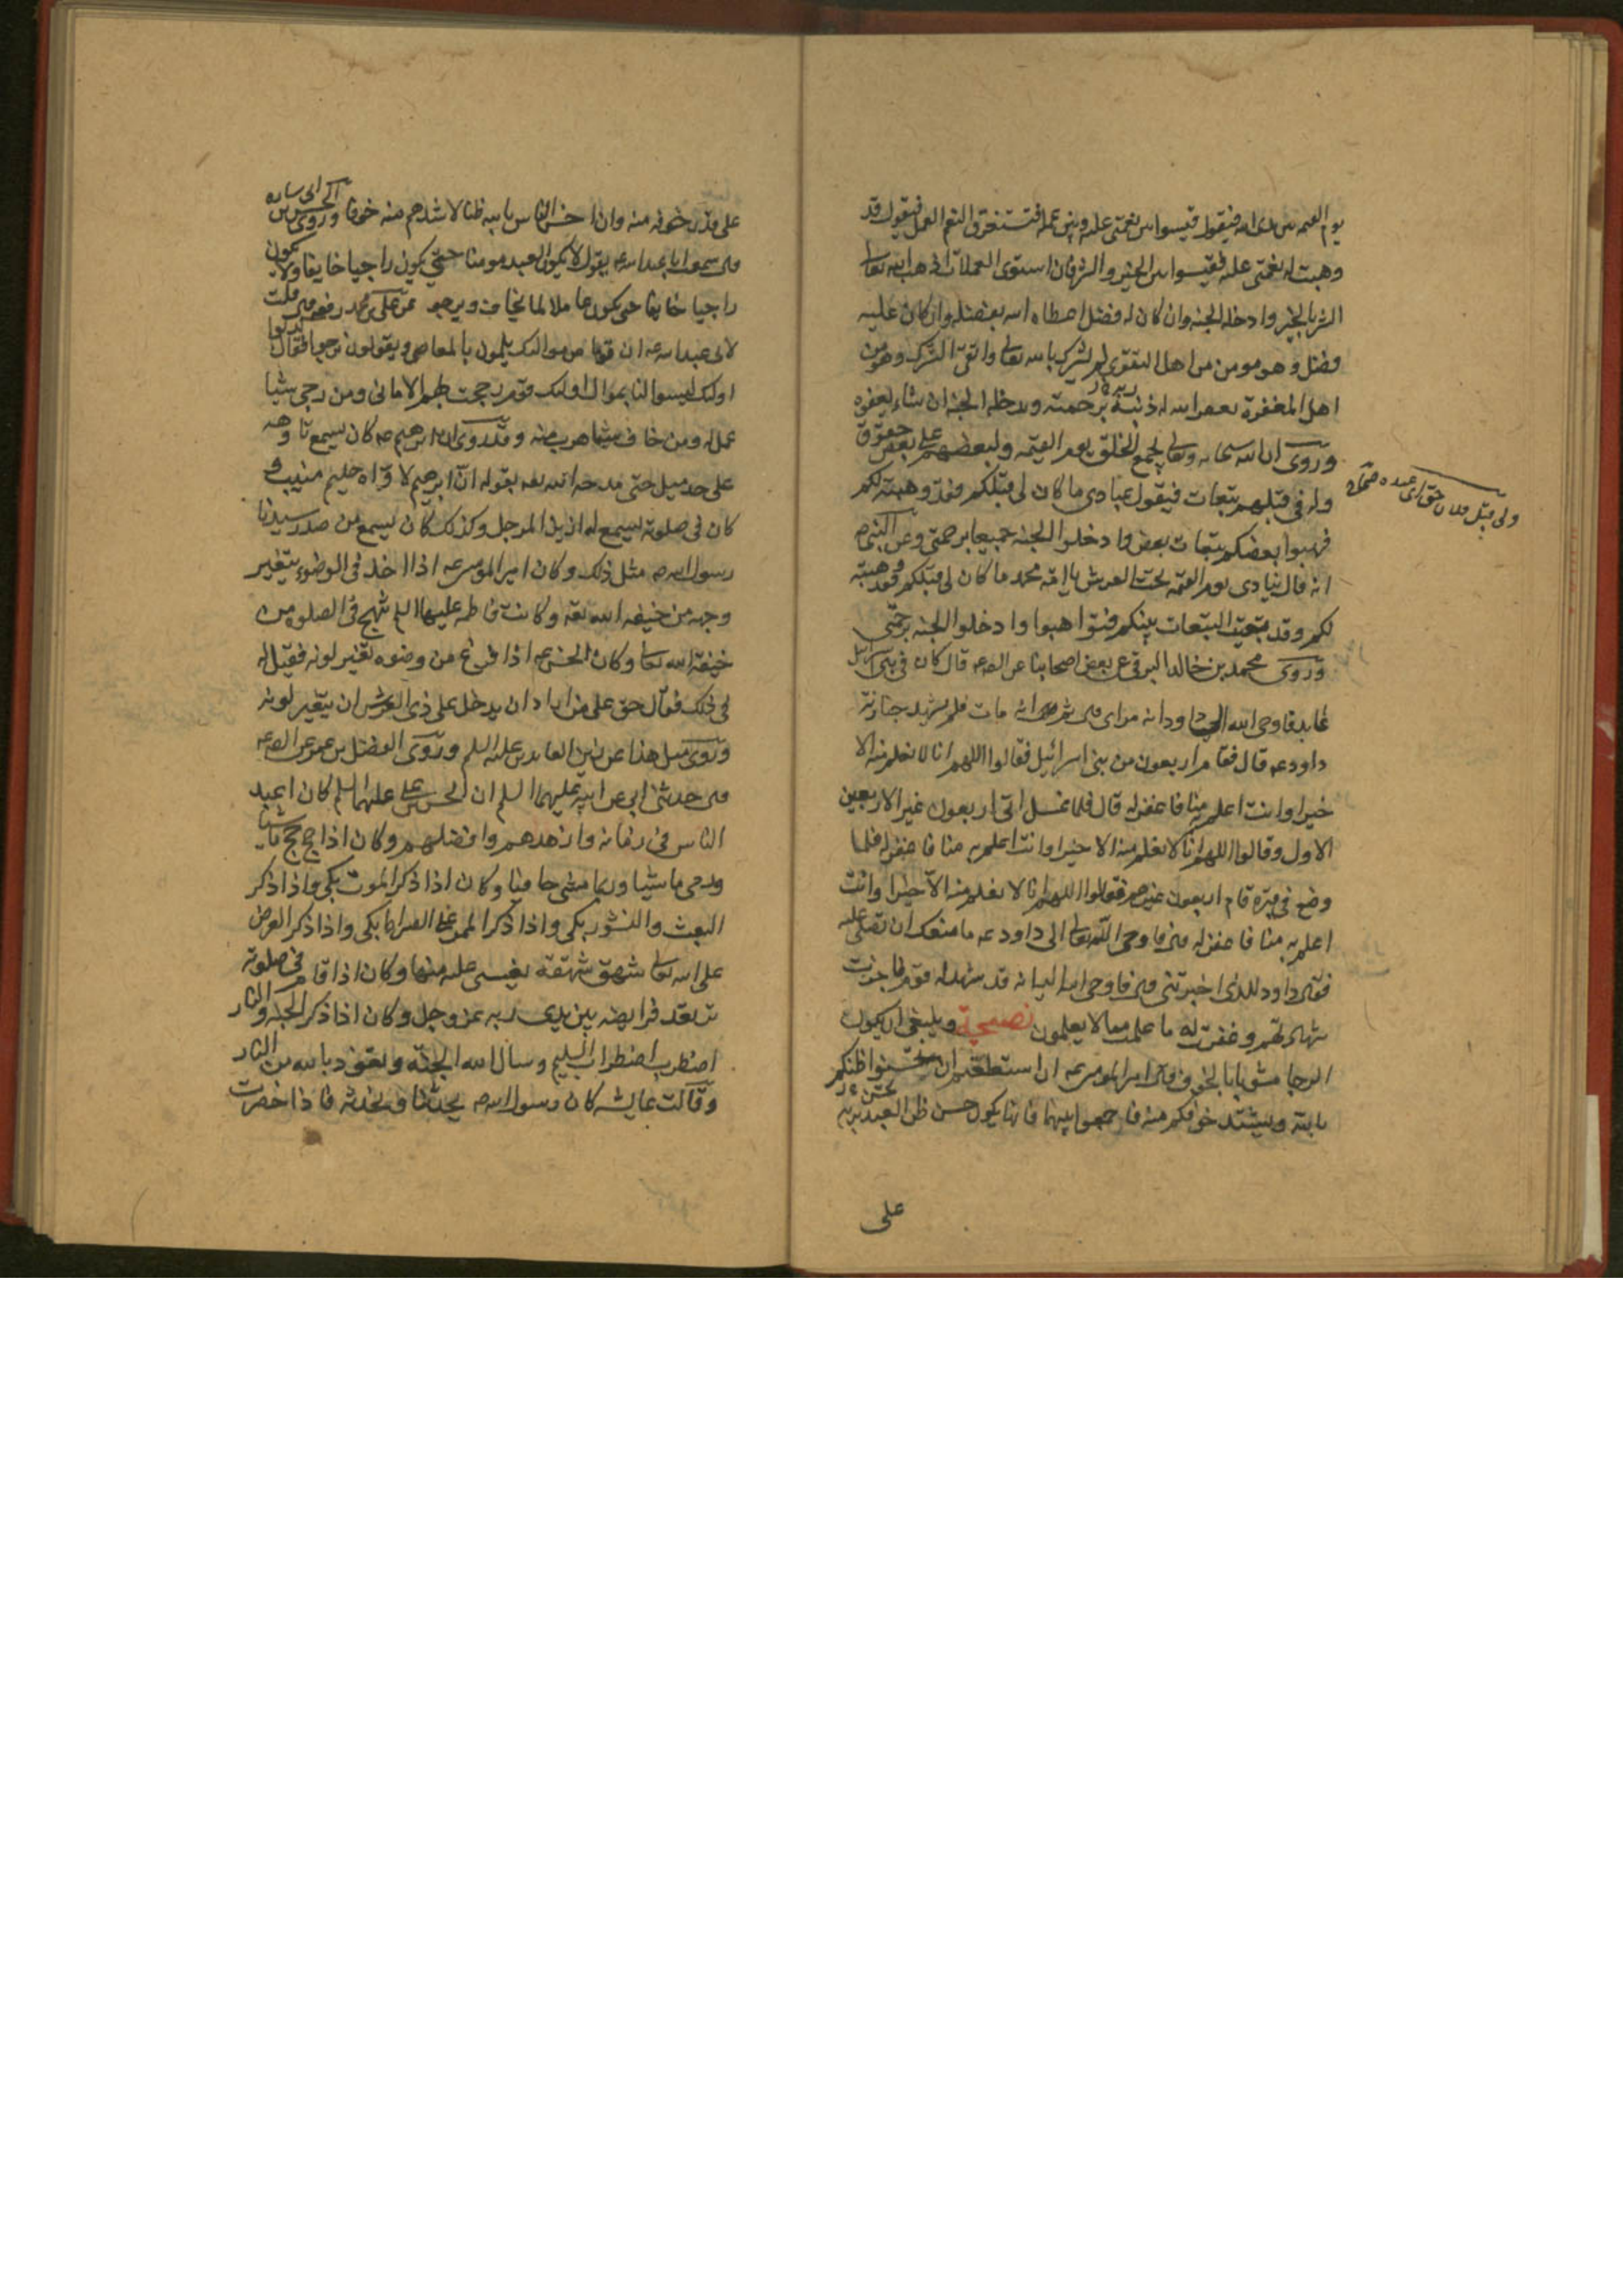 يوم القيمه بين يدى الله فيقول قيسوا بين نعمتى عليه وبين عمله فتستغرق النعم العمل فيقول قد
وهبت له نعمتى عليه فقيسوا بين الخير والشر فان استوى العملان اذهب الله تعالى
الشر بالخير وادخله الجنه وان كان له فضل اعطاه الله بفضله وان كان عليه
فضل وهو مومن من اهل التقوى لم يشرك بالله تعالى واتقى الشرك وهو من
اهل المغفرة يغفر الله له ذنبه برحمته ويدخله الجنه ان شاء بعفوه
وروى ان الله سبحانه وتعالى يجمع الخلق يوم القيمه ولبعضهم على بعض حقوق
وله فى قبلهم تبعات فيقول عبادى ما كان لى قبلكم فقد وهبته لكم
ولى قبل فلان حق اى عنده صحاح
فهبوا بعضكم تبعات بعض وادخلوا الجنه جميعا برحمتى وعن النبى ص
انه قال ينادى يوم القيمه تحت العرش يا امة محمد ما كان لى قبلكم فقد وهبته
لكم وقد بقيت التبعات بينكم فتواهبوا وادخلوا الجنه برحمتى
وروى محمد بن خالد البرقى عن بعض اصحابنا عن الصه عه قال كان فى بنى اسرائيل
عابد فاوحى الله الى داود انه مراى قال ثم انه مات فلم يشهد جنازته
داود عه قال فقام اربعون من بنى اسرائيل فقالوا اللهم انا لا نعلم منه الا
خيرا وانت اعلم به منا فاغفر له قال فلما غسل اتى اربعون غير الاربعين
الاول وقالوا اللهم انا لا نعلم منه الا خيرا وانت اعلم به منا فاغفر له فلما
وضع فى قبره قام اربعون غيرهم فقالوا اللهم انا لا نعلم منه الا خيرا وانت
اعلم به منا فاغفر له قال فاوحى الله تعالى الى داود عه ما منعك ان تصلى عليه
فقال داود للذى اخبرتنى قال فاوحى الله اليه انه قد شهد له قوم فاجزت
شهادتهم وغفرت له ما علمت مما لا يعلمون نصيحة وينبغى ان يكون
الرجا مشوبا بالخوف قال امير المومنين عه ان استطعتم ان يحسن ظنكم
بالله ويشتد خوفكم منه فاجمعوا بينهما فانما يكون حسن ظن العبد بربه
على
على قدر خوفه منه وان احسن الناس بالله ظنا لاشدهم منه خوفا وروى الحسن بن ابى ساره
قال سمعت ابا عبد الله عه يقول لا يكون العبد مومنا حتى يكون راجيا خايفا ولا يكون
راجيا خايفا حتى يكون عاملا لما يخاف ويرجو عن على بن محمد رفعه قال قلت
لابى عبد الله عه ان قوما من مواليك يلمون بالمعاصى ويقولون نرجو فقال كذبوا
اولئك ليسوا لنا بموال اولئك قوم رجحت بهم الامانى ومن رجى شيئا
عمل له ومن خاف شيئا هرب منه وقد روى ان ابرهيم عه كان يسمع تاوهه
على حد ميل حتى مدحه الله تعه بقوله ان ابرهيم لاواه حليم منيب و
كان فى صلوته يسمع له ازيز المرجل وكذلك كان يسمع من صدر سيدنا
رسول الله صه مثل ذلك وكان امير المومنين عه اذا اخذ فى الوضوء يتغير
وجهه من خيفه الله تعه وكانت فاطمه عليها السلم تنهج فى الصلوه من
خيفة الله تعالى وكان الحسن عه اذا فرغ من وضوه تغير لونه فقيل له
فى ذلك فقال حق على من اراد ان يدخل على ذى العرش ان يتغير لونه
وروى مثل هذا عن زين العابدين عليه السلم وروى المفضل بن عمر عن الصه عه
قال حدثنى ابى عن ابيه عليهما السلم ان الحسن بن على عليهما السلم كان اعبد
الناس فى زمانه وازهدهم وافضلهم وكان اذا حج حج ماشيا
ورمى ماشيا وربما مشى حافيا وكان اذا ذكر الموت بكى واذا ذكر
البعث والنشور بكى واذا ذكر الممر على الصراط بكى واذا ذكر العرض
على الله تعالى شهق شهقة يغشى عليه منها وكان اذا قام فى صلوته
ترتعد فرايصه بين يدى ربه عز وجل وكان اذا ذكر الجنه والنار
اضطرب اضطراب السليم وسال الله الجنه وتعوذ بالله من النار
وقالت عايشه كان رسول الله صه يحدثنا ونحدثه فاذا حضرت